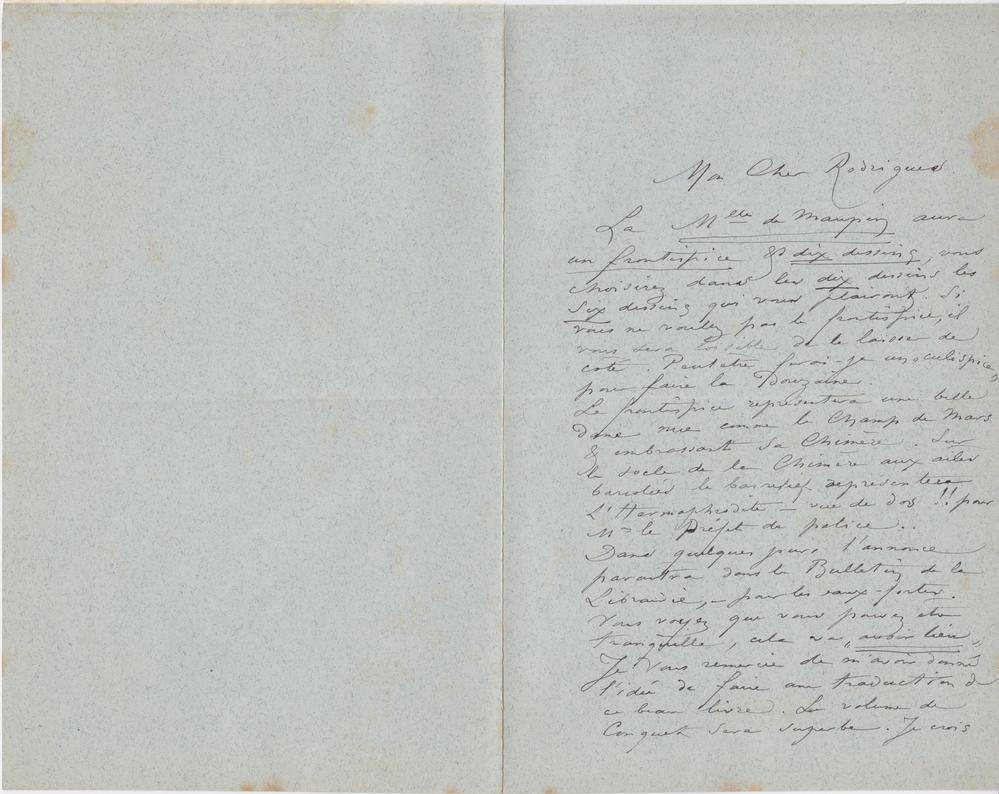 Mon Cher Rodrigues.
La Mlle de Maupin aura
un frontispice & dix dessins, vous
choisirez dans les dix dessins les
Six dessins qui vous plairont. Si
vous ne voulez pas le frontispice, il
vous sera loisible de le laisser de
coté. Peutetre ferai-je un oculispice
pour faire la Douzaine.
Le frontispice représentera une belle
dame nue comme le Champ de Mars
& embrassant sa Chimère. Sur
le socle de la Chimère aux ailes
bariolées le basrelief représentera
L'Hermaphrodite – vue de dos !! pour
Mr le Préfet de police ..
Dans quelques jours l'annonce
paraitra dans le Bulletin de la
Librairie, – pour les eaux-fortes.
Vous voyez que vous pouvez etre
tranquille, cela va „avoir lieu„
Je Vous remercie de m'avoir donné
l'idée de faire une traduction de
ce beau livre. Le volume de
Conquet sera superbe. Je crois